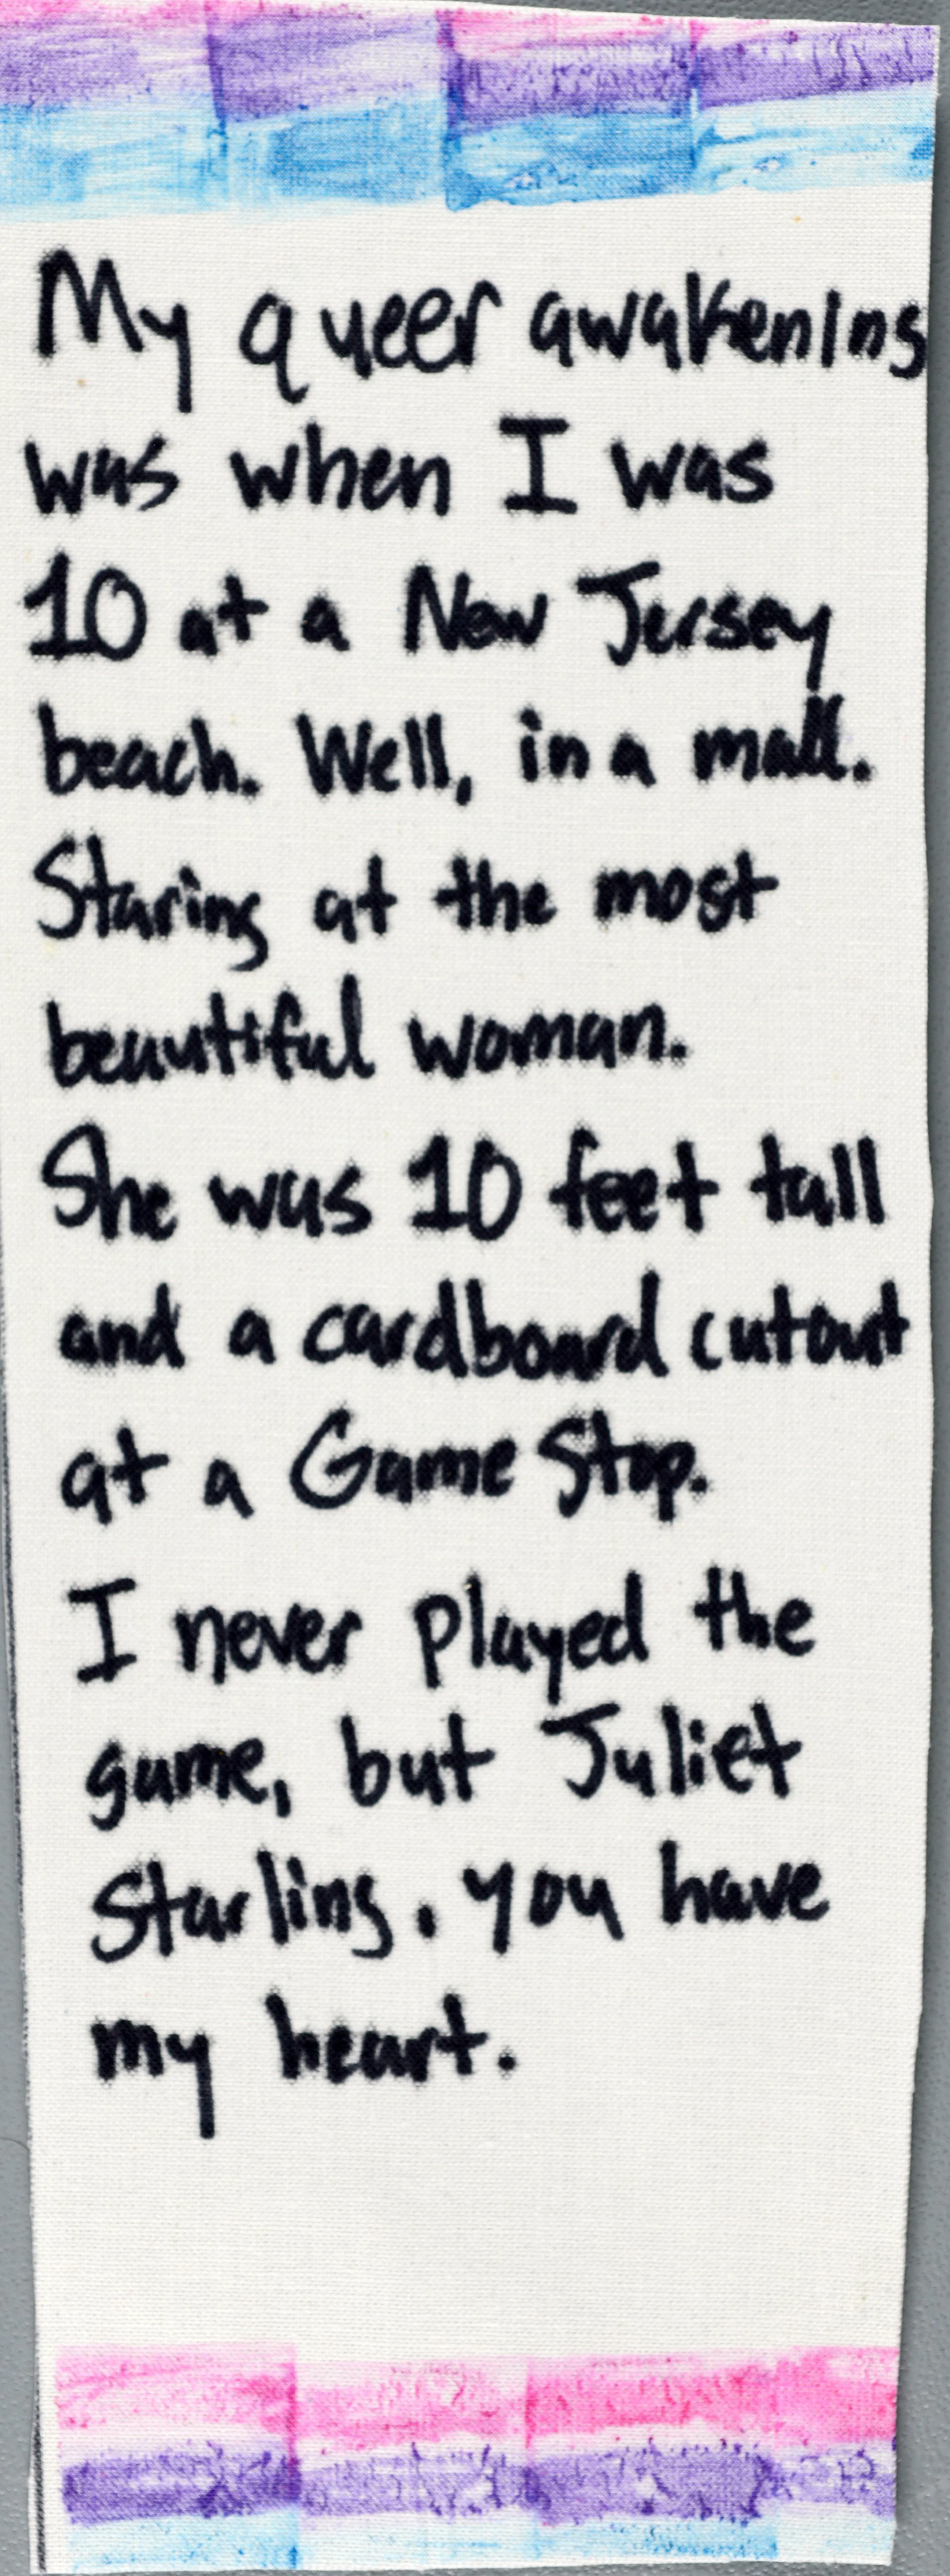 My queer awakening
was when I was
10 at a New Jersey
beach. Well, in a mall.
Staring at the most
beautiful woman.
She was 10 feet tall
and a cardboard cutout
at a Game Stop.
I never played the
game, but Juliet
Starling. you have
my heart.